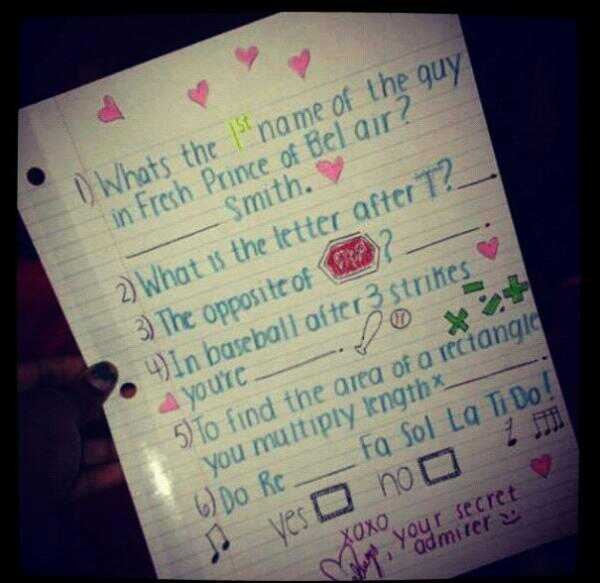 1) Whats the 1st name of the guy
in Fresh Prince of Bel air?
________ Smith.
2) What is the letter after T? ____.
3) The opposite of STOP? ______.
4) In baseball after 3 strikes
you're ________.
5) To find the area of a rectangle
you multiply length x ________.
6) Do Re _____ Fa Sol La Ti Do!
yes no
xoxo
your secret
admirer